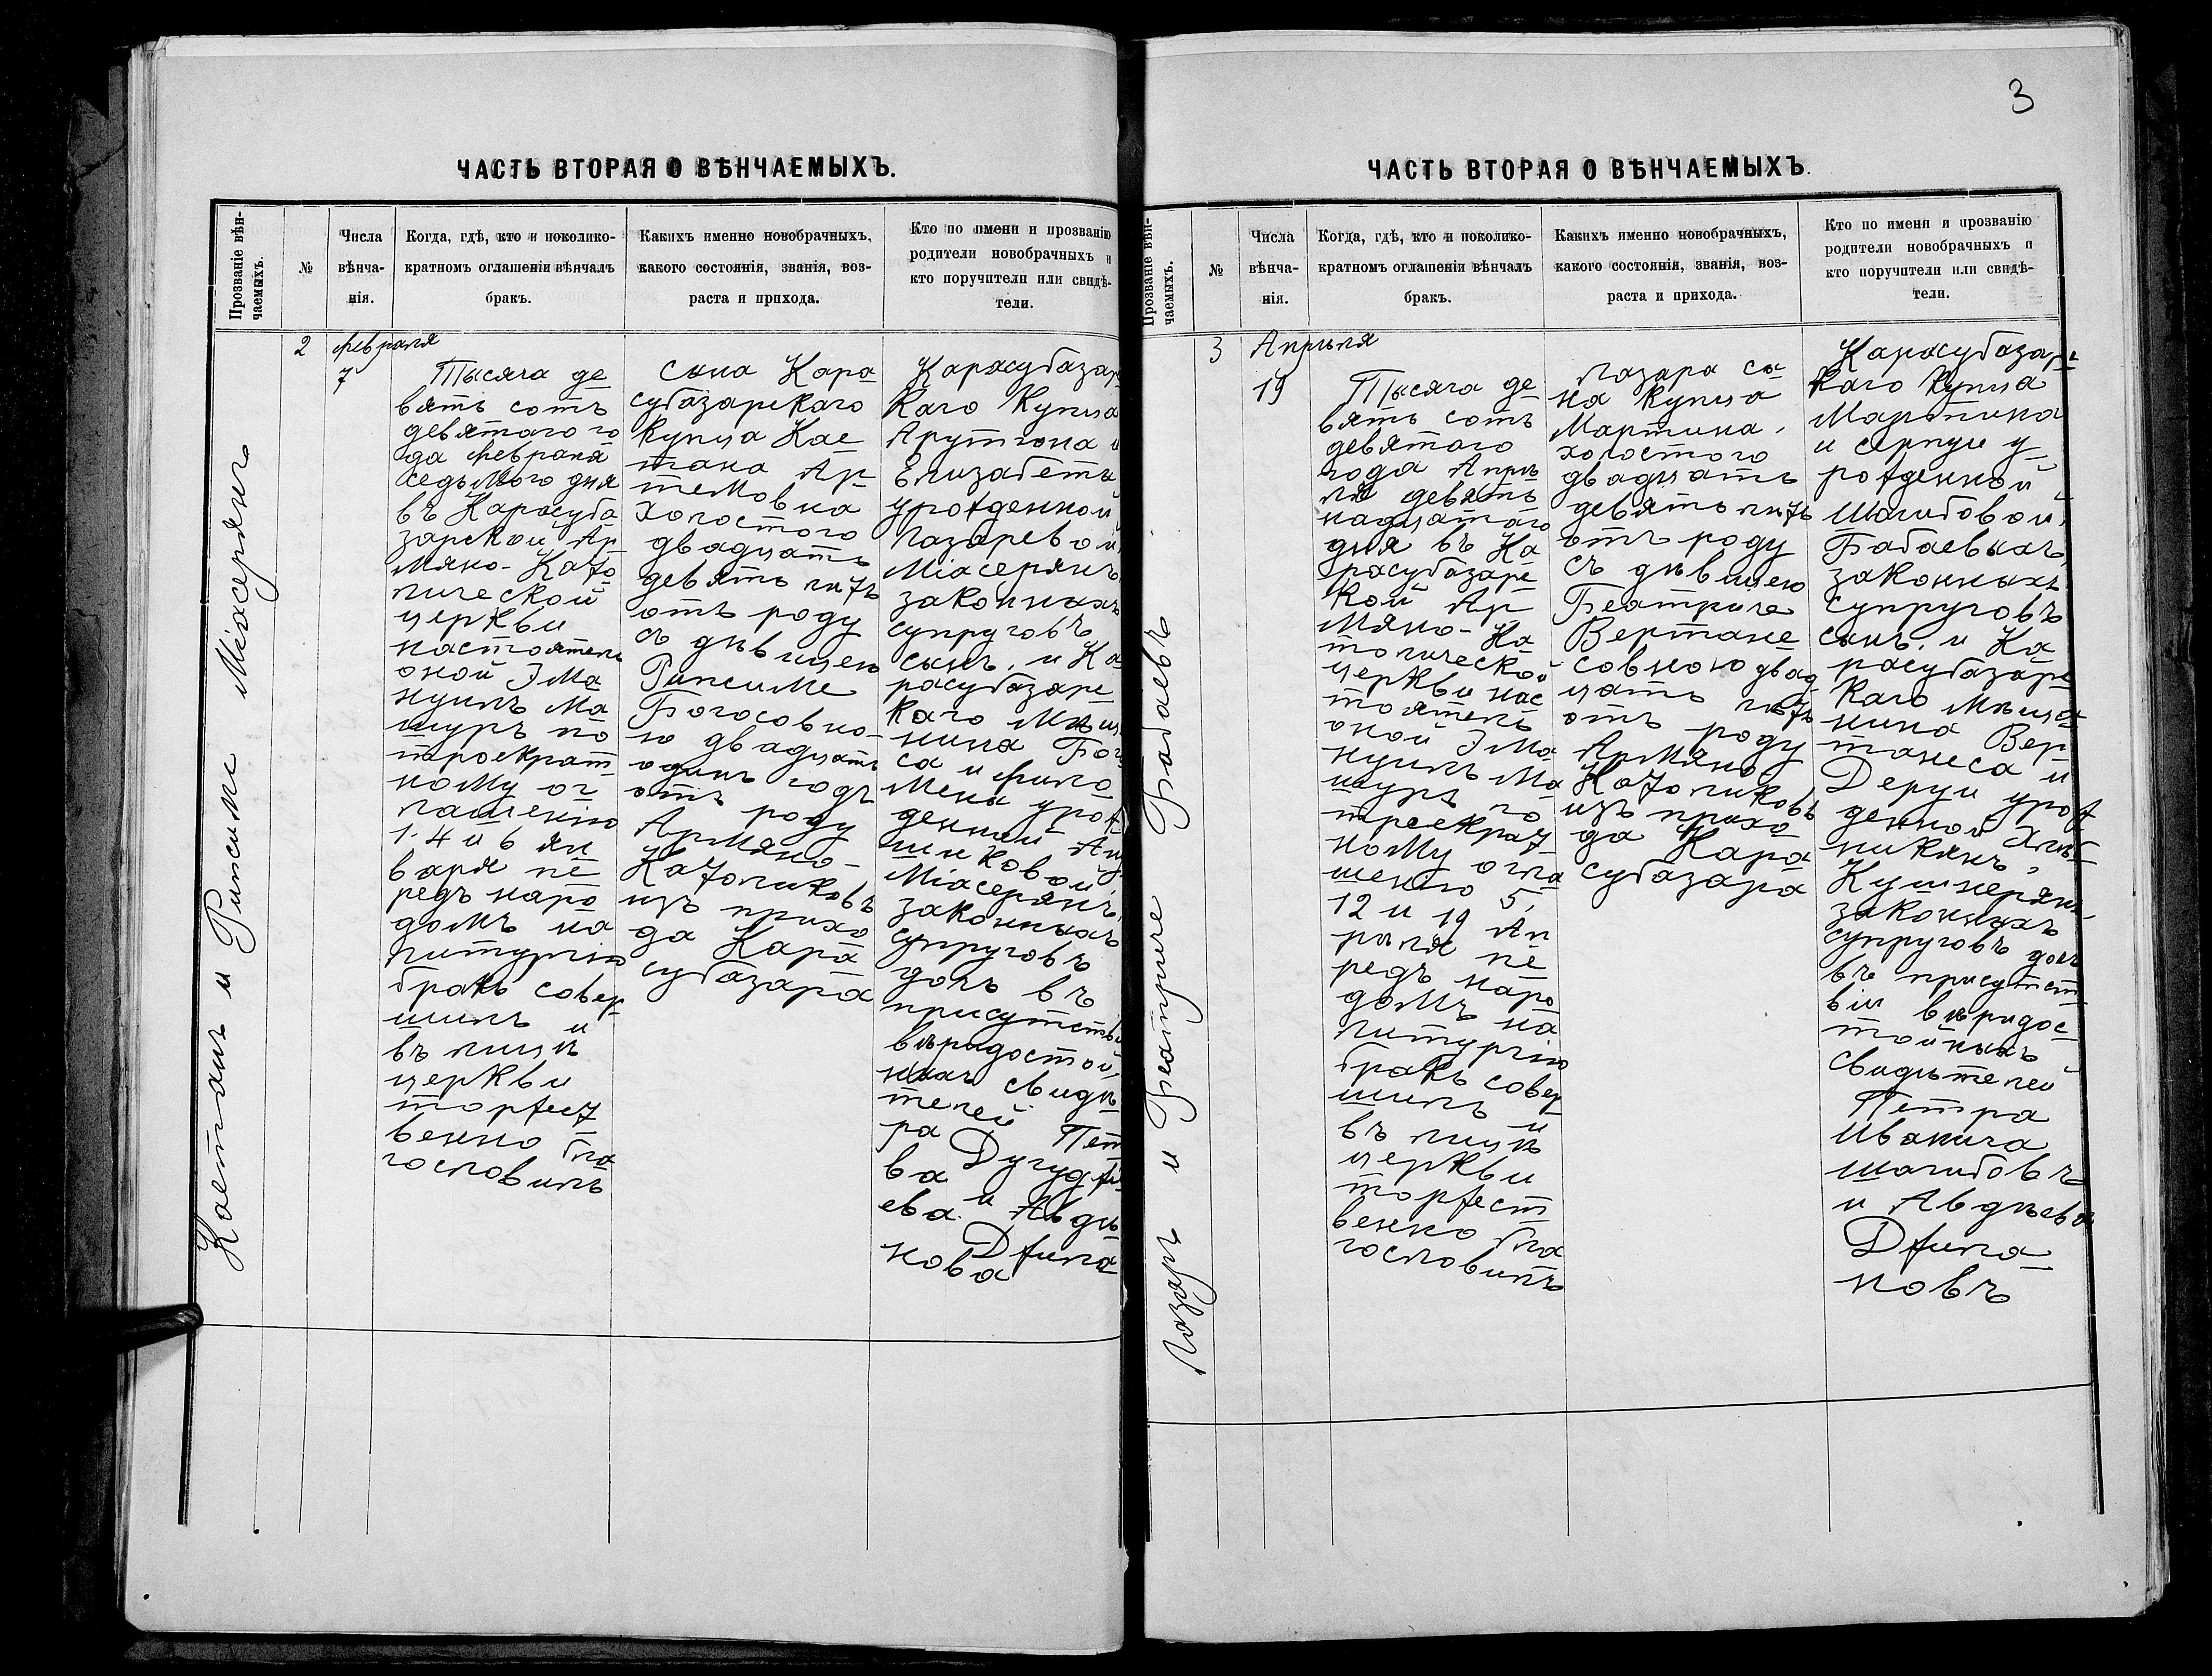 3
ЧАСТЬ ВТОРАЯ О ВѢНЧАЕМЫХЪ.
Прозваніе вѣн-
чаемыхъ.
№
Числа
вѣнча-
нія.
Когда, гдѣ, кто и поколико-
кратномъ оглашеніи вѣнчалъ
бракъ.
Какихъ именно новобрачныхъ,
какого состоянія, званія, воз-
раста и прихода.
Кто по имени и прозванію
родители новобрачныхъ и
кто поручители или свидѣ-
тели.
Каетанъ и Рипсиме Міасерянъ
2
февраля
7
Тысяча де
вять сотъ
девятаго го
да февраля
седьмого дня
въ Карасуба
зарской Ар
мяно-Като
лической
церкви
настоятель
оной Эма
нуилъ Ма
шуръ по
троекрат
ному ог
лашенію
1. 4 и 6 ян
варя пе
редъ наро
домъ на
литургію
бракъ совер
шилъ и
въ лицѣ
церкви
торжест
венно бла
гословилъ
Сына Кара
субазарскаго
купца Кае
тана Ар
темовна
холостого
двадцать
девять лѣтъ
отъ роду
съ дѣвицею
Рипсиме
Богосовно
ю двадцать
одинъ годъ
отъ роду
Армяно-
Католиковъ
изъ прихо
да Кара
субазара
Карасубазар
Каго Купца
Арутюна и
Елизабеты
урожденной
Лазаревой
Міасерянъ
законныхъ
супруговъ
сынъ, и Ка
расубазарс
каго Мѣща
нина Бого
са и фило
мены урож
денной
шиковой
Міасерянъ,
законныхъ
супруговъ
дочь въ
присутствіи
вѣридостой
ныхъ свидѣ
телей Пет
ра
Дугудж
ва и Авдѣ
ева Джила
нова
ЧАСТЬ ВТОРАЯ О ВѢНЧАЕМЫХЪ.
Прозваніе вѣн-
чаемыхъ.
№
Числа
вѣнча-
нія.
Когда, гдѣ, кто и поколико-
кратномъ оглашеніи вѣнчалъ
бракъ.
Какихъ именно новобрачныхъ,
какого состоянія, званія, воз-
раста и прихода.
Кто по имени и прозванію
родители новобрачныхъ и
кто поручители или свидѣ-
тели.
Лазаръ и Беатриче Бабаевъ
3
Апрѣля
19
Тысяча де
вять сотъ
девятаго
года Апрѣ
ля девять
надцатаго
дня въ Ка
расубазарс
кой Ар
мяно-Ка
толической
церкви нас
тоятель
оной Эма
нуилъ Ма
шуръ по
троекрат
ному огла
шенію 5,
12 и 19 Ап
рѣля пе
редъ наро
домъ на
литургію
бракъ совер
шилъ и
въ лицѣ
церкви
торжест
венно бла
гословилъ
Лазара сы
на купца
Мартина,
холостого
двадцать
девять лѣтъ
отъ роду
съ дѣвицею
Беатриче
Вертане
совною двад
цать лѣтъ
отъ роду
Армяно
Католиковъ
изъ прихо
да Кара
субазара
Карасубазарс
каго Купца
Мартина
и серпуи у
рожденной
Шагибовой
Бабаевыхъ,
законныхъ
супруговъ
сынъ, и Ка
расубазарс
каго Мѣща
нина Вер
танеса и
Деруи урож
денной Хлѣб
никянъ,
Кушнерянъ
законныхъ
супруговъ дочь
въ присутст
віи вѣридос
тойныхъ
свидѣтелей
Петра
Иванича
Шагибовъ
и Авдѣева
Джила
новъ